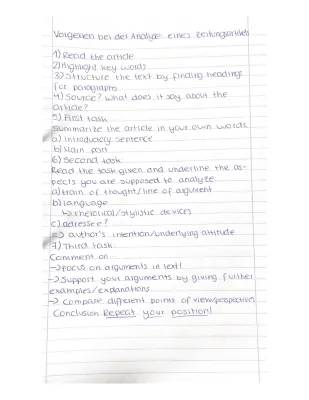 Vorgehen bei der Analyse eines Zeitungsartikels
1) Read the article
2) Highlight key words
3) Structure the text by finding headings
for paragraphs
4) Source? What does it say about the
article?
5) First task
Summarize the article in your own words
a) Introductory sentence
b) Main part
6) Second task
Read the task given and underline the as-
pects you are supposed to analyze
a) train of thought/line of argument
b) language
↳ rhetorical/stylistic devices
c) adressee?
=> author's intention/underlying attitude
7) Third task
Comment on
→ Focus on arguments in text!
→ Support your arguments by giving further
examples/explanations
→ Compare different points of view/perspectives
Conclusion: Repeat your position!